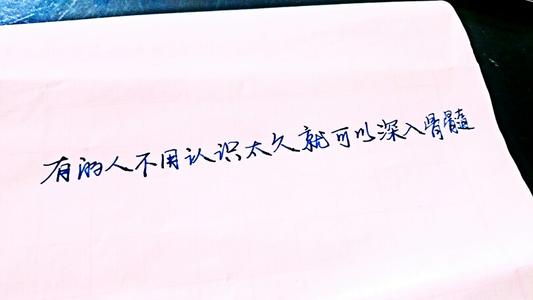 有的人不用认识太久就可以深入骨髓